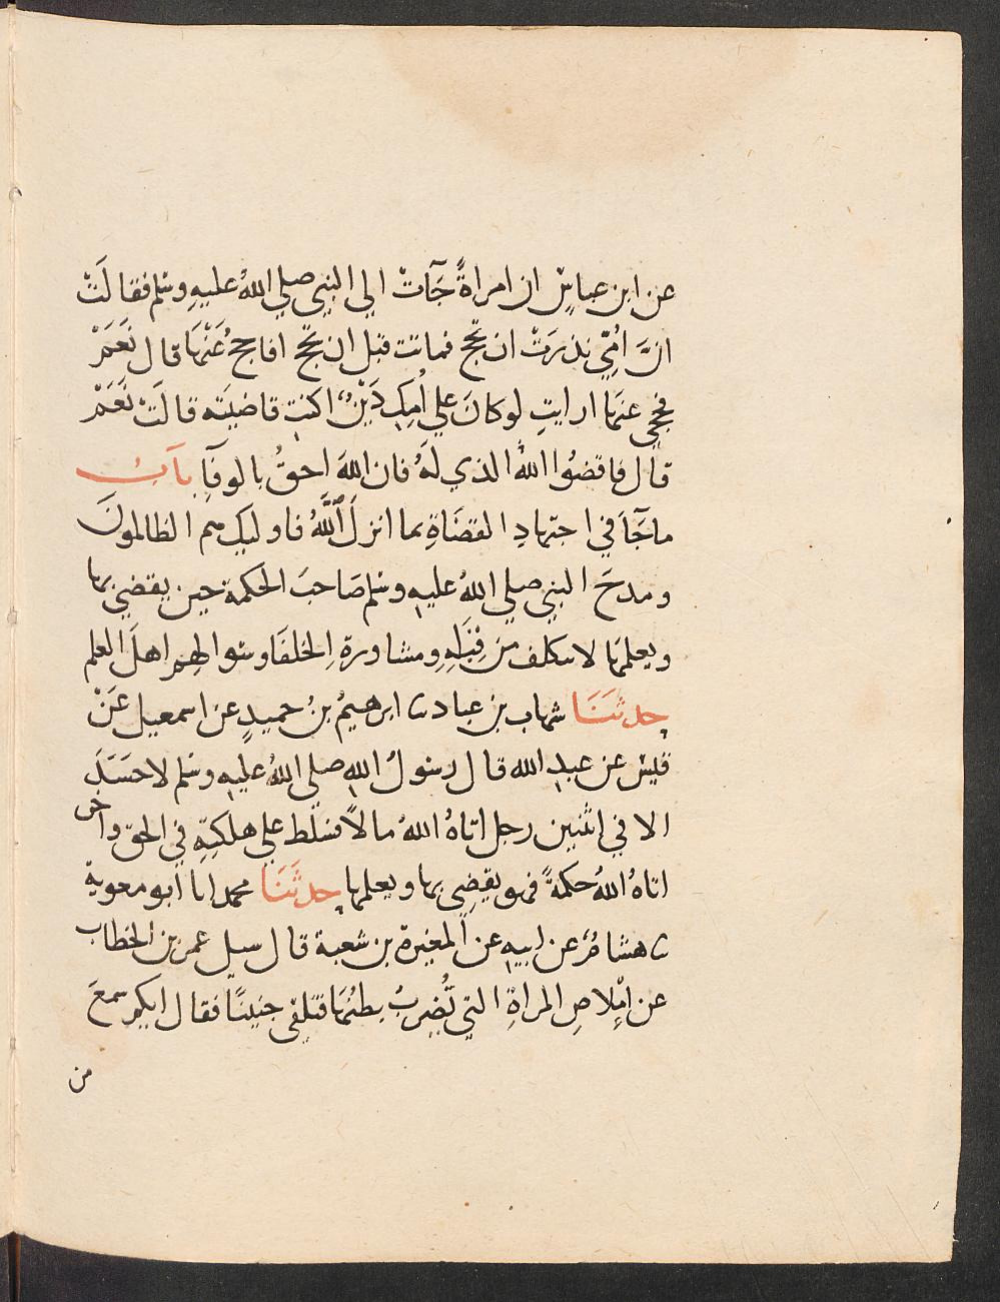 عن ابن عباسٍ ان امراةً جَآتْ الي النبي صلي اللهُ عليهِ وسلم فقالَتْ
انَّ امُيّ نذرَتْ ان تحج فماتت قبل ان تحج افاحجُ عَنْهَا قال نَعَمْ
حجي عنهَا ارايتِ لو كانَ علي اُمِكِ دَيْنٌ اكنتِ قاضيَته قالَتْ نَعَمْ
قال فاقضُوا اللهَ الذي لَهُ فان اللهَ احقُ بالوفآِ بَابُ
ماجَآَ في اجتهادِ القضَاةِ بما انزلَ اللَّهُ فاوليِك هم الظالمونَ
ومدحَ النبي صلي اللهُ عليهِ وسلم صَاحبَ الحكمة حين يقضي بها
ويعلمها لا يتكلف من قِبَلِهِ ومشاورةِ الخلفَا وسوالهم اهلَ العلم
حدثَنَا شهاب بن عباد ثنا ابرهيمُ بنُ حميدٍ عن اسمعيل عَنْ
قيس عن عبدِ الله قال رسولُ اللهِ صلي اللهُ عليهِ وسلم لا حَسَدَ
الا في اثنين رجل اتاهُ اللهُ مالًا فسُلّط علي هلكتِهِ في الحق واخر
اتاهُ اللهُ حكمةً فهو يقضِي بها ويعلمها حدثَنَا محمد انا ابو معوية
ثنا هشامٌ عن ابيهِ عن المغيرة بن شعبة قال سيل عمر بن الخطاب
عن امْلاصِ المراةِ التي تُضرِبُ بطنُهَا فتلقي جنينًا فقال ايكم سمعَ
من